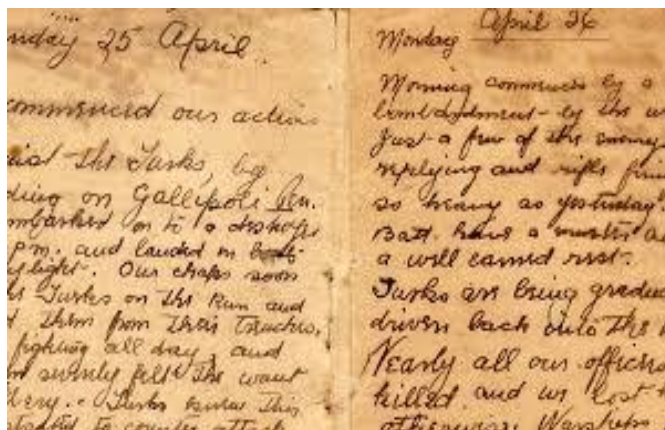 nday 25 April.
ommenced our action
the Turks, by
ding on Gallipoli Pen.
mbarked on to a
pm. and landed in
light. Our chaps soon
Turks on the Run and
them from their trenches,
fighting all day, and
severely felt the want
lery. Turks knew this
to counter attack
April 26
Monday
Morning commences by a
bombardment by the w
Just a few of the enemy
replying and rifle fire
so heavy as yesterday
Batt. have a muster a
a well earned rest.
Turks are being gradu
driven back onto the
Nearly all our officers
killed and we lost
otherwise. Warships